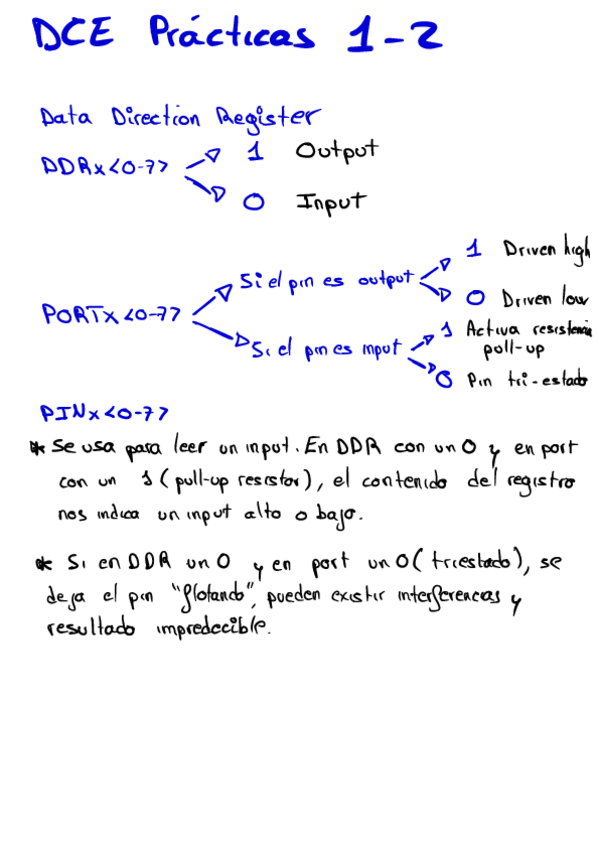 DCE Prácticas 1-2
Data Direction Register
DDRx<0-7>
1 Output
0 Input
PORTx<0-7>
Si el pin es output
1 Driven high
0 Driven low
Si el pin es input
1 Activa resistencia
pull-up
0 Pin tri-estado
PINx<0-7>
* Se usa para leer un input. En DDR con un 0 y en port
con un 1 (pull-up resistor), el contenido del registro
nos indica un input alto o bajo.
* Si en DDR un 0 y en port un 0 (triestado), se
deja el pin "flotando", pueden existir interferencas y
resultado impredecible.